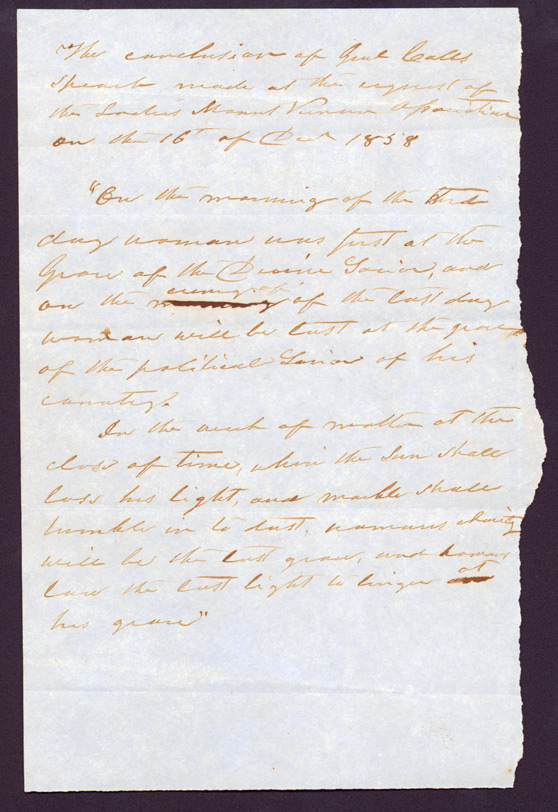 The conclusion of Genl Calls
Speach made at the request of
the Ladies Mount Vernon Association
on the 16th of Decr 1858
"On the morning of the third
day woman was first at the
Grave of the Divine Savior, and
on the evening of the last day
woman will be last at the grave
of the political Savior of his
country.
In the wreck of matter at the
close of time, when the Sun shall
loss his light, and marble shall
crumble in to dust, womans charity
will be the last grace, and womans
love the last light to linger at
his grave"